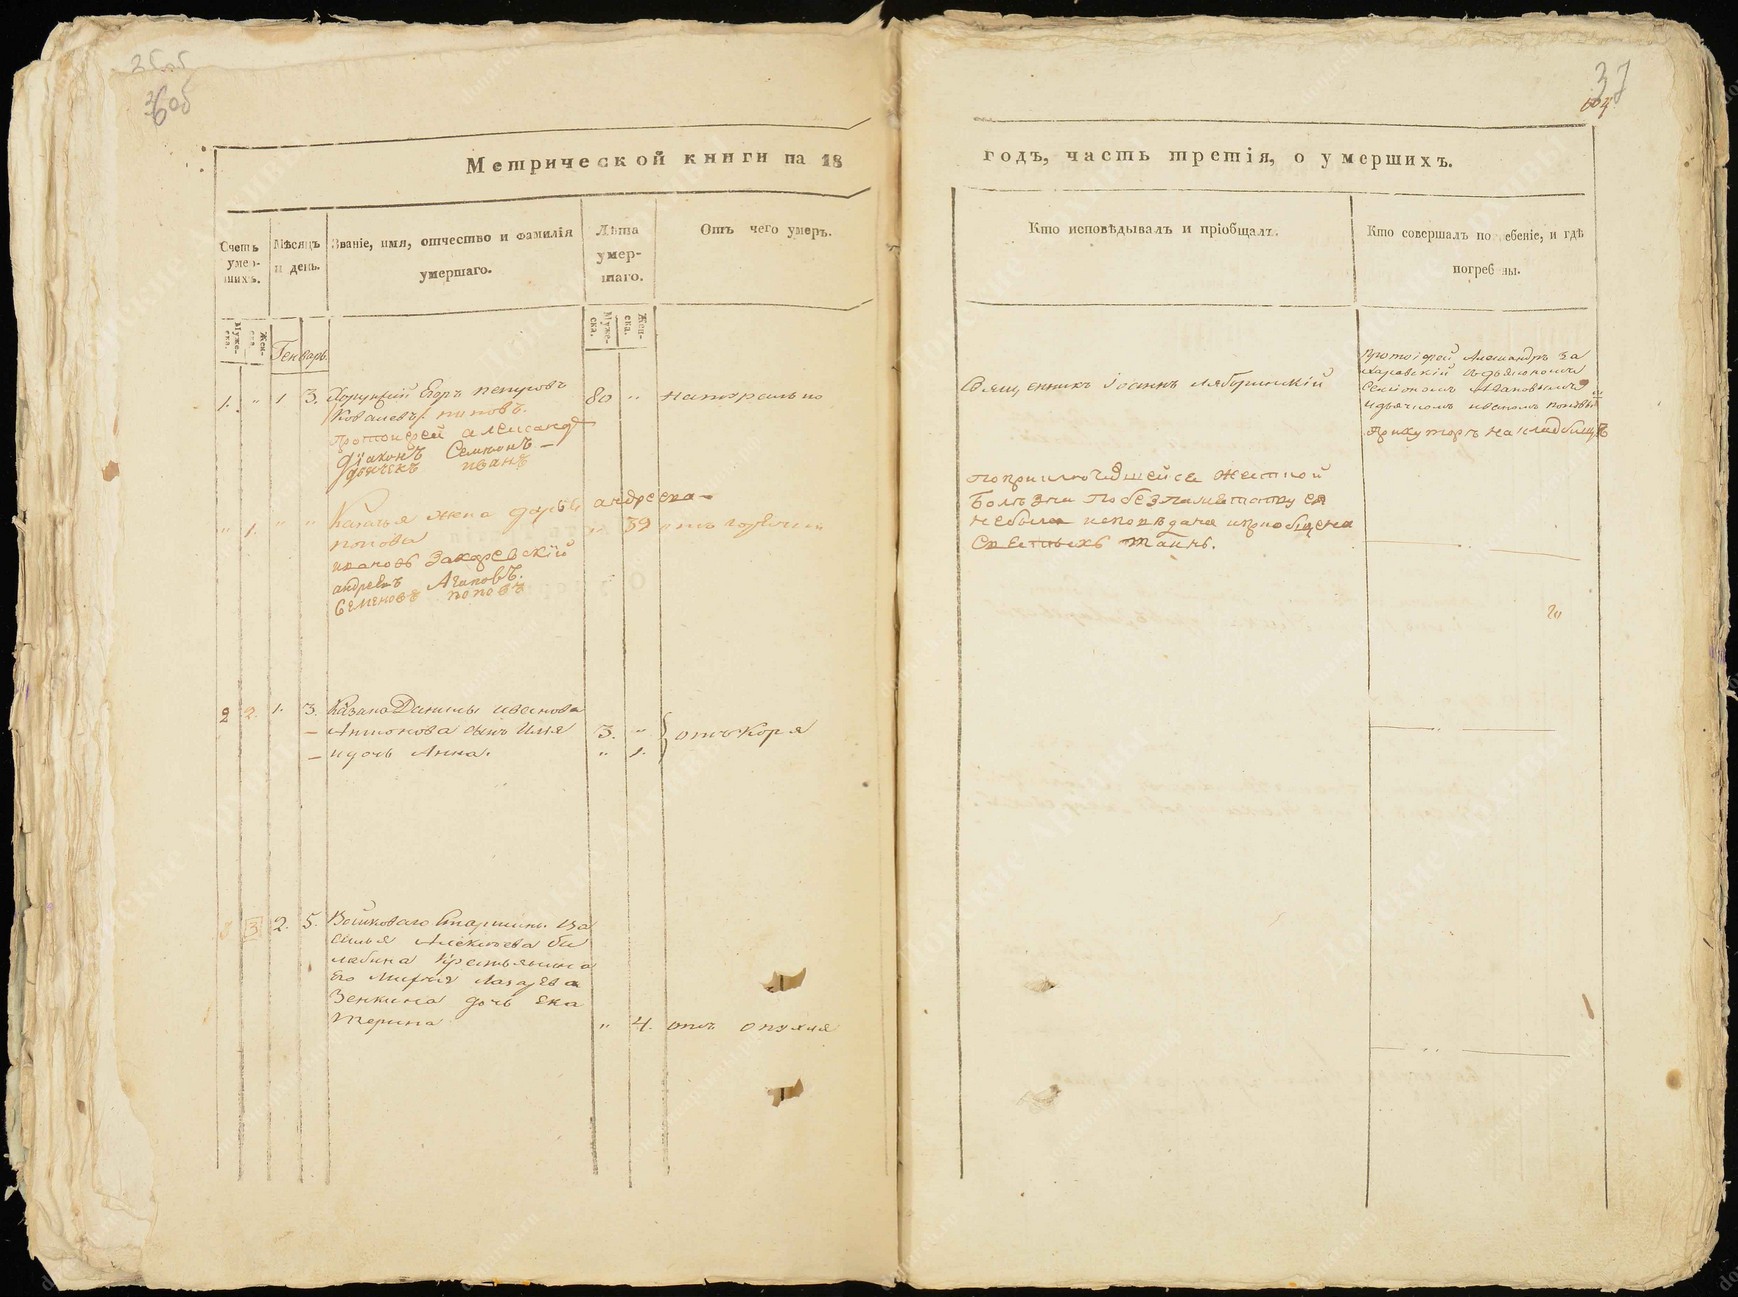 36об
37
Метрической книги на 18
годъ, часть третія, о умершихъ.
Счетъ умер-шихъ.
Мѣсяцъ и день.
Званіе, имя, отчество и фамилія умершаго.
Лѣта умер-шаго.
Отъ чего умеръ.
Кто исповѣдывалъ и пріобщалъ.
Кто совершалъ погребеніе, и гдѣ погребены.
Муже-ска.
Жен-ска.
Муже-ска.
Жен-ска.
Генварь
1. " 1 3. Хорунжий Егоръ петровъ
Ковалевъ поповъ.
80 " натурально
протоиерей александ
діаконъ Семионъ
дьячекъ иванъ
Священникъ Іоаннъ
Протоіерей Александръ За
харевскій съ дьякономъ
Семіономъ Агаповымъ
идьячкомъ иваномъ поповы
Прихутор на кладбищѣ
" 1. " " Казачья жена дарья андреева
попова
" 39
ивановъ Захаревскій
андреевъ Агаповъ.
Семеновъ поповъ
поприключившейся жестокой
Болѣзни побезпамятству ея
небыла исповѣдана иприобщена
Святыхъ таинъ.
2 2. 1. 3. Казака Данилы иванова
Антонова сынъ Илья
3. "
и дочь Анна.
" 1.
отъ Коря
3 3 2. 5. Войсковаго Старшины Ва
силья Алексѣева Би
лабина Крестьянина
Его Лазарева
Зенкина дочь Ека
терина
" 4. отъ опухля